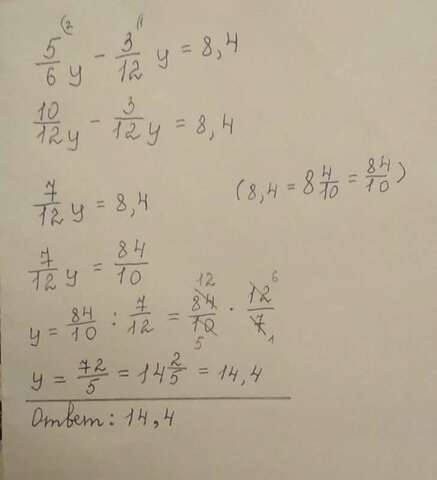 5/6 (2 y - 3/12 (1 y = 8,4
10/12 y - 3/12 y = 8,4
7/12 y = 8,4 (8,4 = 8 4/10 = 84/10)
7/12 y = 84/10
y = 84/10 : 7/12 = 84 12/10 5 · 12 6/7 1
y = 72/5 = 14 2/5 = 14,4
Ответ: 14,4